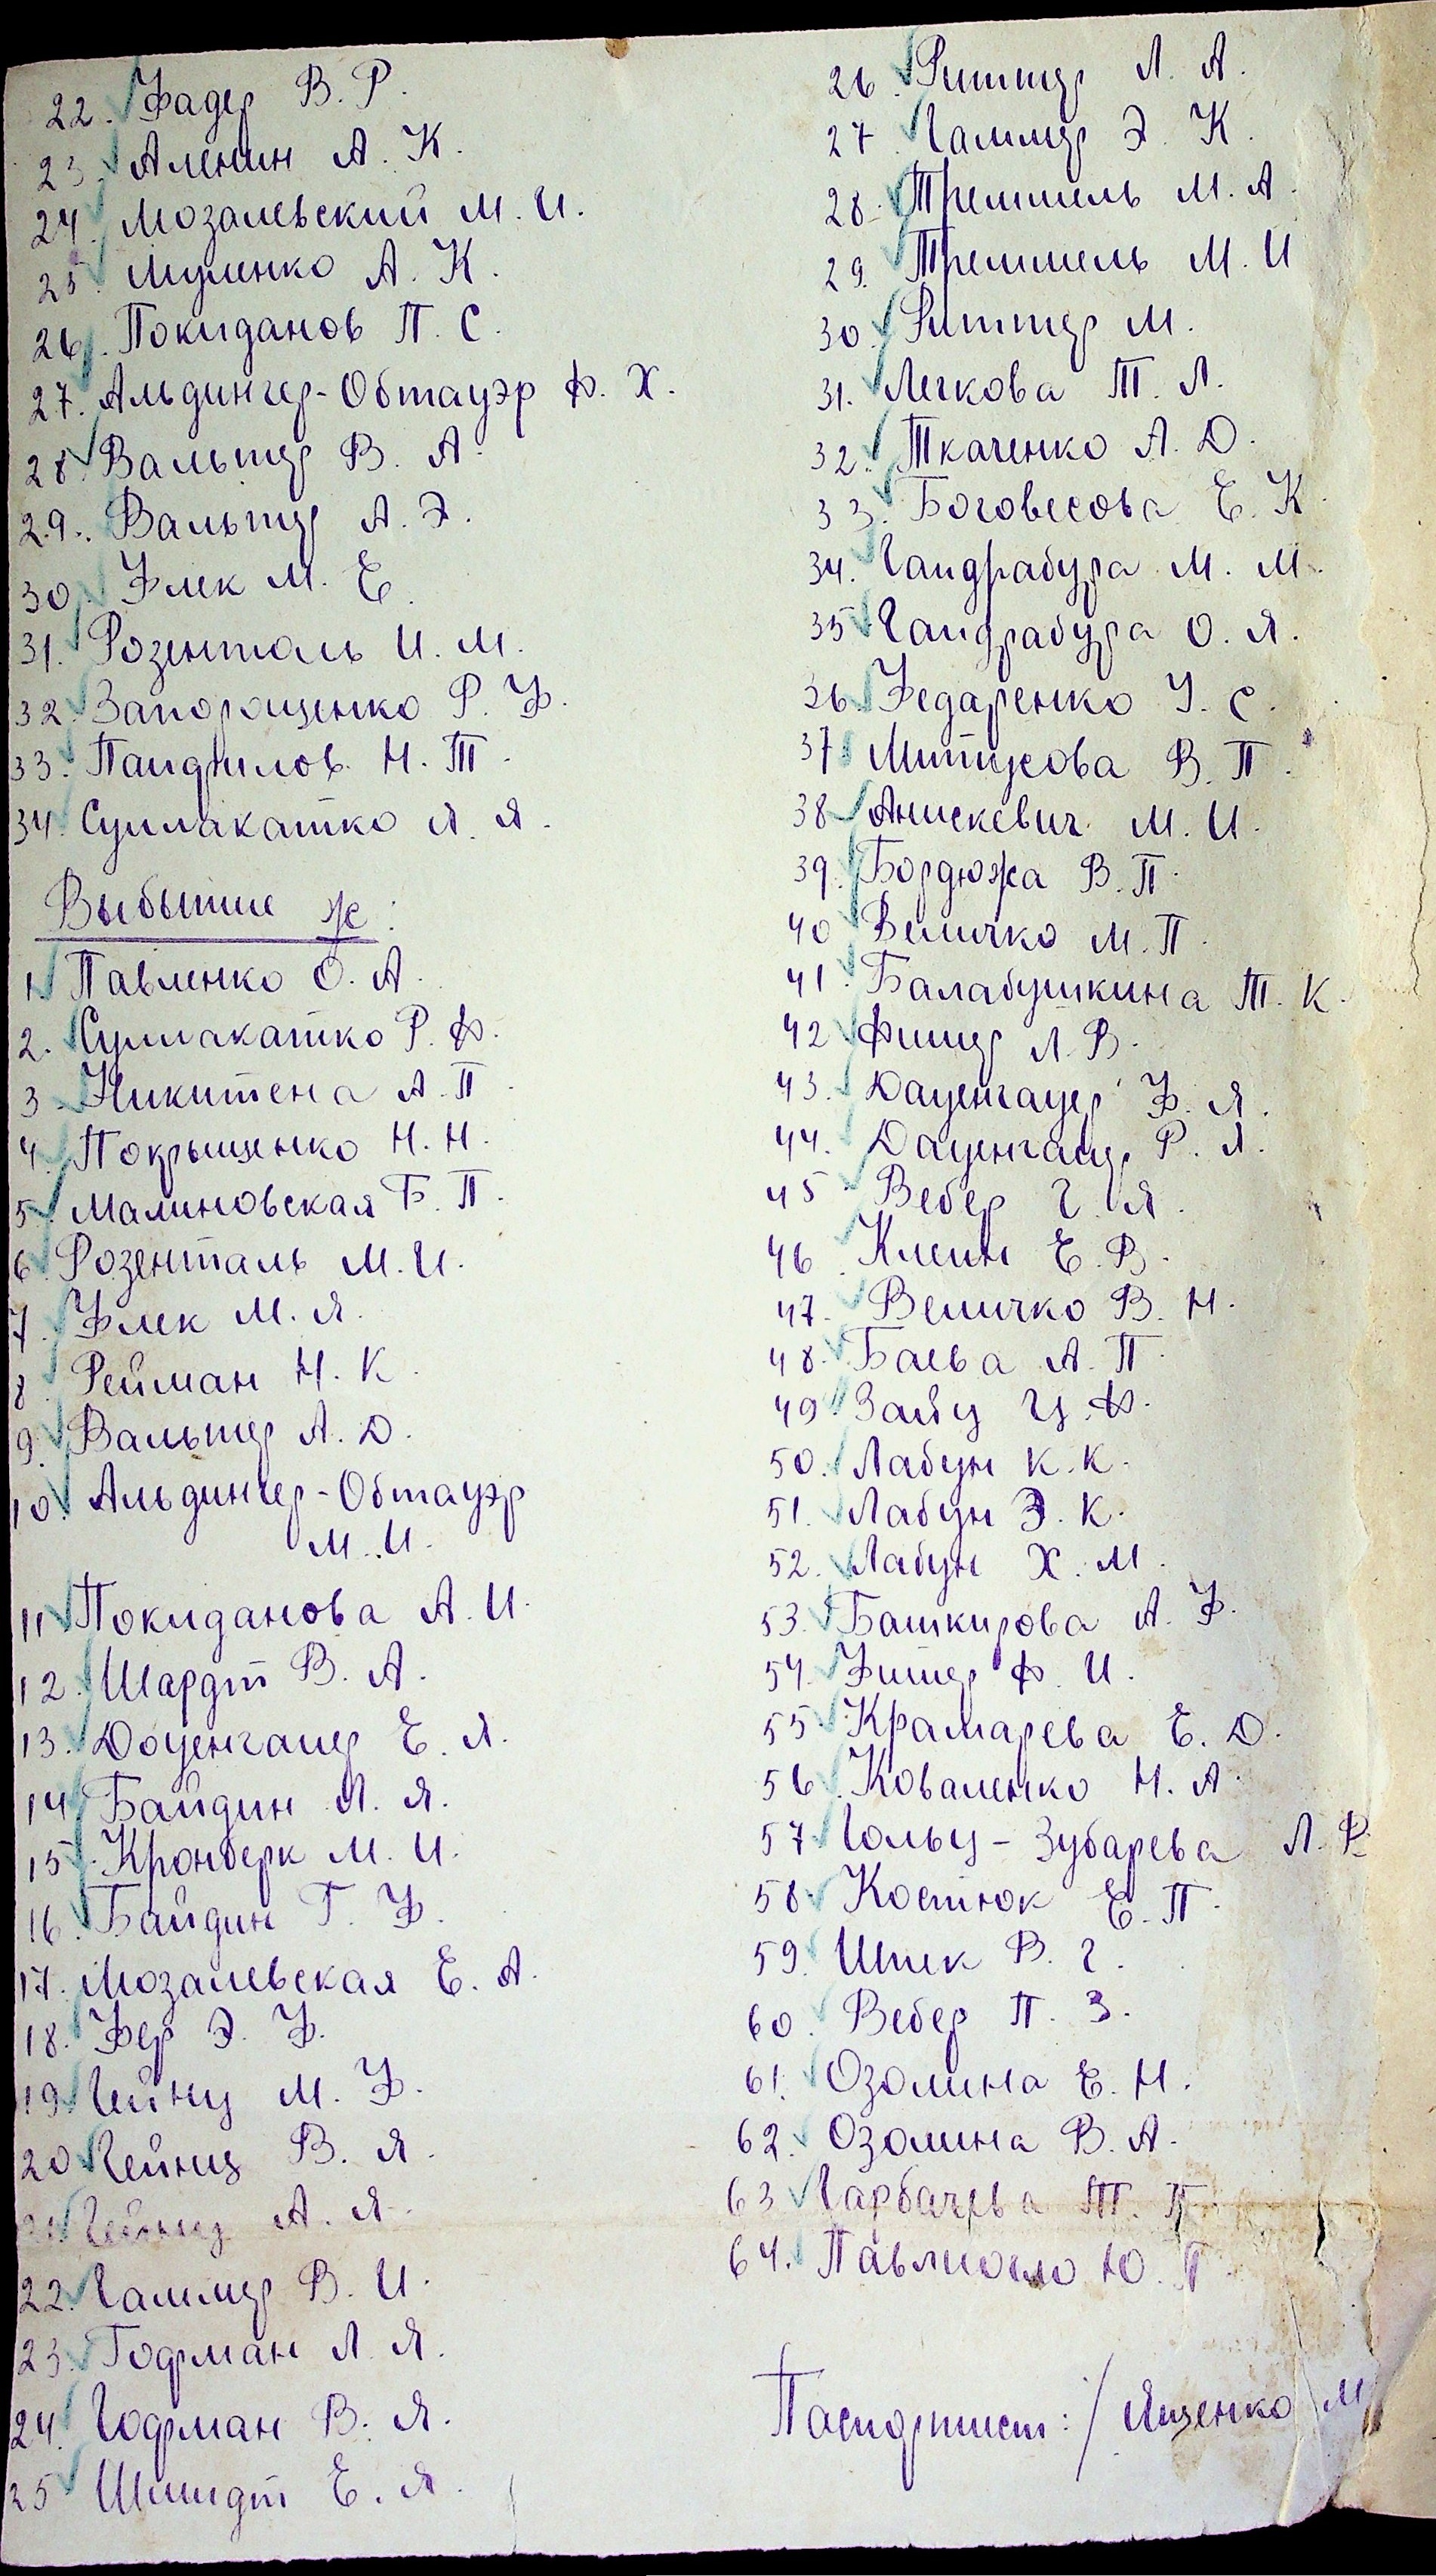 22. Фадер В. Р.
23. Аленин А. К.
24. Мозалевский М. И.
25. Муленко А. К.
26. Покиданов П. С.
27. Альдингер-Обтауэр Ф. Х.
28. Вальтер В. А.
29. Вальтер А. Э.
30. Флек М. Е.
31. Розенталь И. М.
32. Запорощенко Р. Ф.
33. Панфилов Н. Т.
34. Суллакатко Я. Я.
Выбытие ж:
1. Павленко О. А.
2. Суллакатко Р. Ф.
3. Никитена А. П.
4. Покрыщенко Н. Н.
5. Малиновская Б. П.
6. Розенталь М. И.
7. Флек М. Я.
8. Рейман Н. К.
9. Вальтер А. Д.
10. Альдингер-Обтауэр
М. И.
11. Покиданова А. И.
12. Шардт В. А.
13. Доценгауер Е. Я.
14. Байдин Л. Я.
15. Кронберк М. И.
16. Байдин Г. Ф.
17. Мозалевская Е. А.
18. Фер Э. Ф.
19. Гейнц М. Ф.
20. Гейнц В. Я.
21. Гейнц А. Я.
22. Галлер В. И.
23. Гофман Л. Я.
24. Гофман В. Я.
25. Шмидт Е. Я.
26. Риттер Л. А.
27. Галлер Э. К.
28. Треммель М. А.
29. Треммель М. И
30. Риттер М.
31. Легкова Т. Л.
32. Ткаченко А. Д.
33. Боговесова Е. К.
34. Гандрабура М. М.
35. Гандрабура О. Я.
36. Федаренко У. С.
37. Митусова В. П.
38. Анискевич М. И.
39. Бордюжа В. П.
40. Величко М. П.
41. Балабушкина Т. К.
42. Фишер Л. В.
43. Дауенгауер Ф. Я.
44. Дауенгауер Р. Я.
45. Вебер Г. Я.
46. Клейн Е. В.
47. Величко В. Н.
48. Баева А. П.
49. Зайц Ц. Ф.
50. Лабун К. К.
51. Лабун Э. К.
52. Лабун Х. М.
53. Башкирова А. Ф.
54. Фишер Ф. И.
55. Крамарева Е. Д.
56. Коваленко Н. А.
57. Гольц - Зубарева Л. Р.
58. Костюк Е. П.
59. Шик В. Г.
60. Вебер П. З.
61. Озолина Е. Н.
62. Озолина В. А.
63. Гарбачева Т. П.
64. Павлиогло Ю. П.
Паспортист: / Ященко М